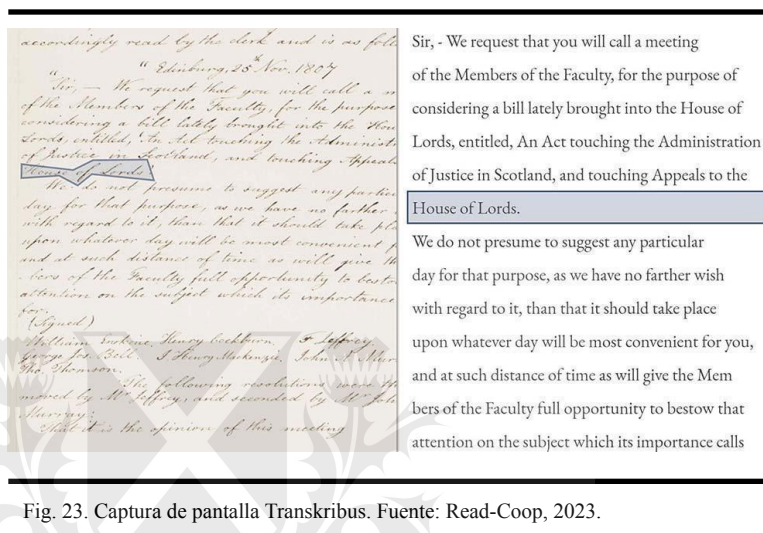 accordingly read by the clerk and is as foll
" " Edinburg, 25th Nov. 1807
"Sir, — We request that you will call a m
of the Members of the Faculty, for the purpose
considering a bill lately brought into the Hou
Lords, entitled, "An Act touching the Administ
of Justice in Scotland, and touching Appeals
House of Lords.
We do not presume to suggest any partic
day for that purpose, as we have no farther
with regard to it, than that it should take pla
upon whatever day will be most convenient f
and at such distance of time as will give th
-bers of the Faculty full opportunity to bestow
attention on the subject which its importance
for.
(Signed)
William Erskine, Henry Cockburn. F Jeffrey.
George Jos. Bell. I Henry Mackenzie, John A Mur
Tho Thomson.
The following resolutions were th
moved by Mr Jeffrey, and seconded by Mr Joh
Murray:
That it is the opinion of this meeting
Sir, - We request that you will call a meeting
of the Members of the Faculty, for the purpose of
considering a bill lately brought into the House of
Lords, entitled, An Act touching the Administration
of Justice in Scotland, and touching Appeals to the
House of Lords.
We do not presume to suggest any particular
day for that purpose, as we have no farther wish
with regard to it, than that it should take place
upon whatever day will be most convenient for you,
and at such distance of time as will give the Mem
bers of the Faculty full opportunity to bestow that
attention on the subject which its importance calls
Fig. 23. Captura de pantalla Transkribus. Fuente: Read-Coop, 2023.